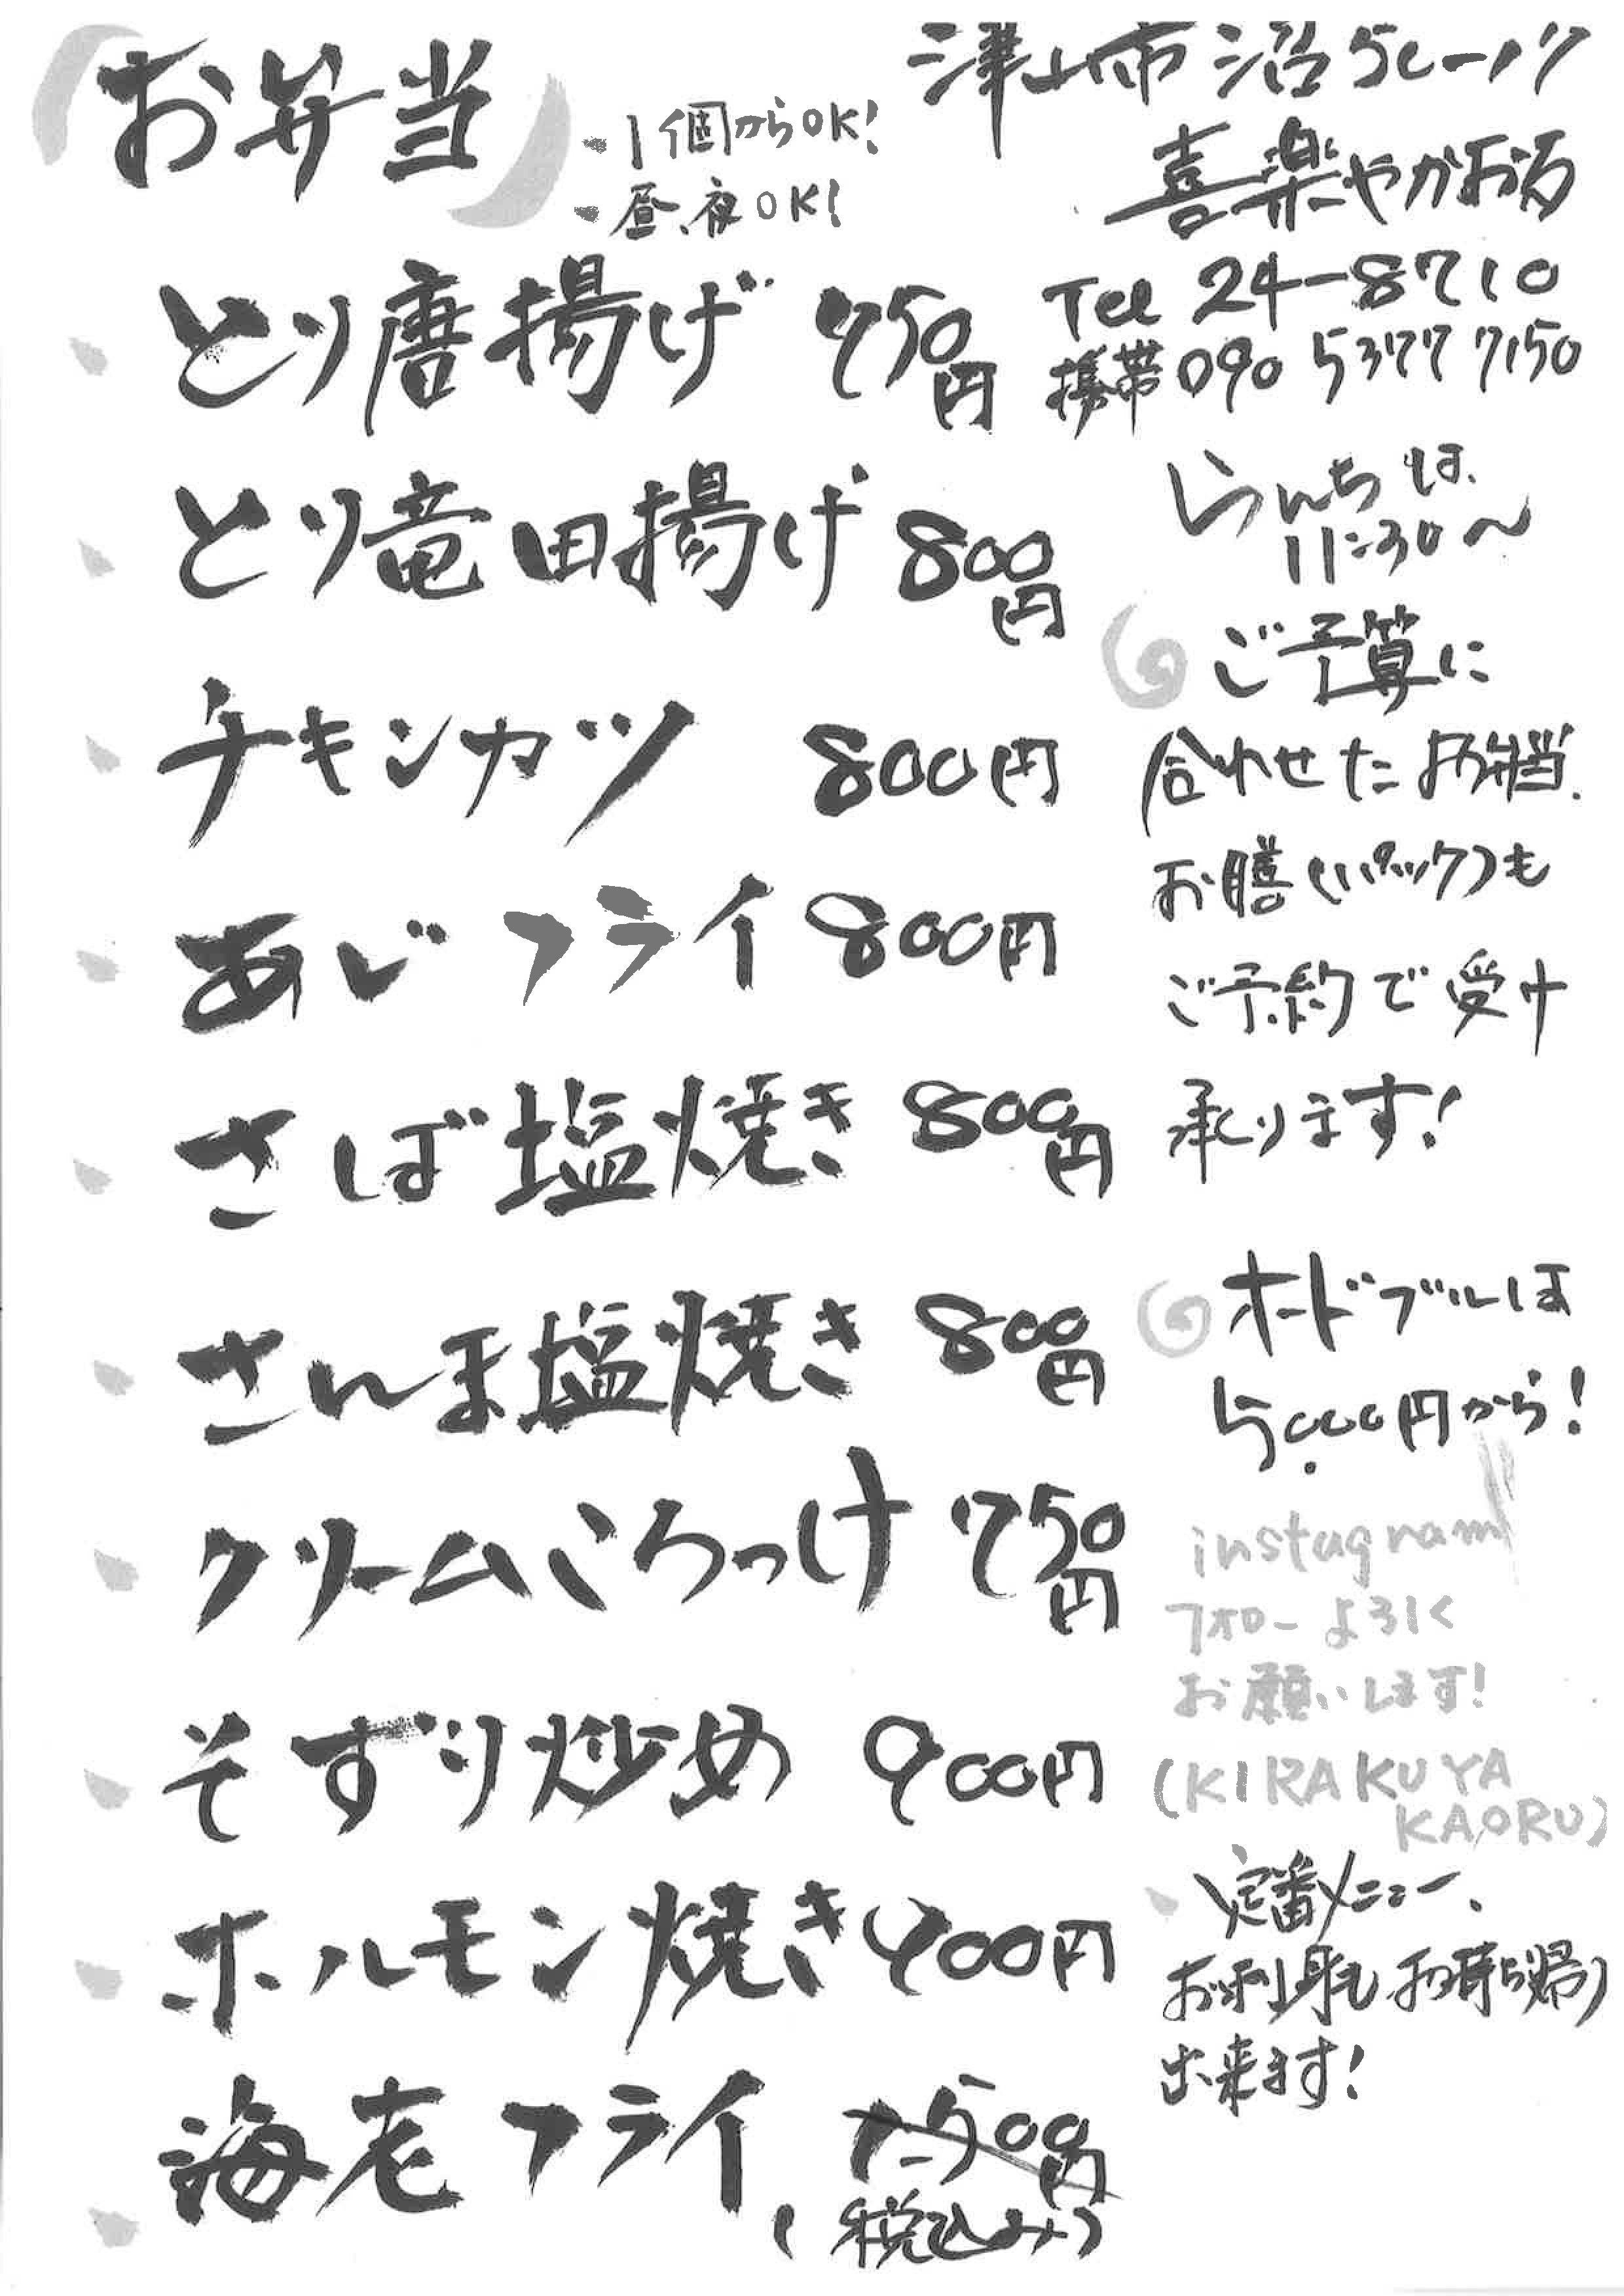 お弁当
・1個からOK!
・昼、夜OK!
とり唐揚げ 750円
とり竜田揚げ 800円
チキンカツ 800円
あじフライ 800円
さば塩焼き 800円
さんま塩焼き 800円
クリームころっけ 750円
そずり炒め 900円
ホルモン焼き 900円
海老フライ
(税込み)
津山市沼5-1-17
喜楽やかおる
Tel 24-8710
携帯 090 5377 7150
らんちは、
11:30〜
ご予算に
合わせたお弁当、
お膳(パック)も
ご予約で受け
承ります!
オードブルは
5,000円から!
instagram
フォローよろしく
お願いします!
(KIRAKUYA
KAORU)
定番メニュー、
お刺身もお持ち帰り
出来ます!